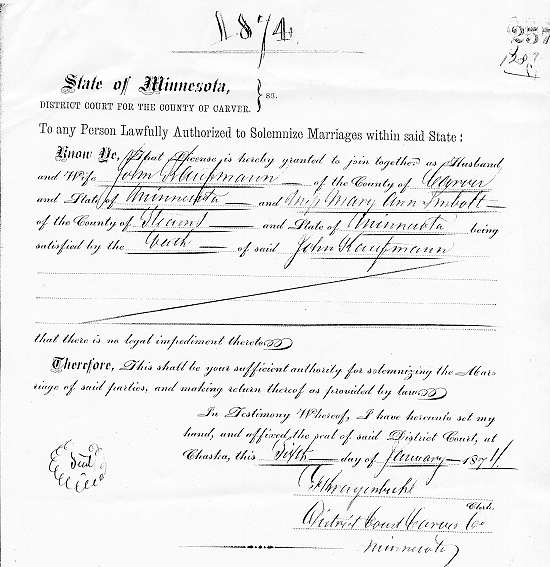 1874
257
128
State of Minnesota,
DISTRICT COURT FOR THE COUNTY OF CARVER. } ss.
To any Person Lawfully Authorized to Solemnize Marriages within said State:
Know Ye, That License is hereby granted to join together as Husband
and Wife John Kaufmann of the County of Carver
and State of Minnesota and Miss Mary Ann Imholt
of the County of Stearns and State of Minnesota being
satisfied by the oath of said John Kaufmann
that there is no legal impediment thereto
Therefore, This shall be your sufficient authority for solemnizing the Mar-
riage of said parties, and making return thereof as provided by law
In Testimony Whereof, I have hereunto set my
hand, and affixed the seal of said District Court, at
Chaska, this Sixth day of January 1874
Seal
G Krayenbuhl
Clerk.
District Court Carver Co
Minnesota